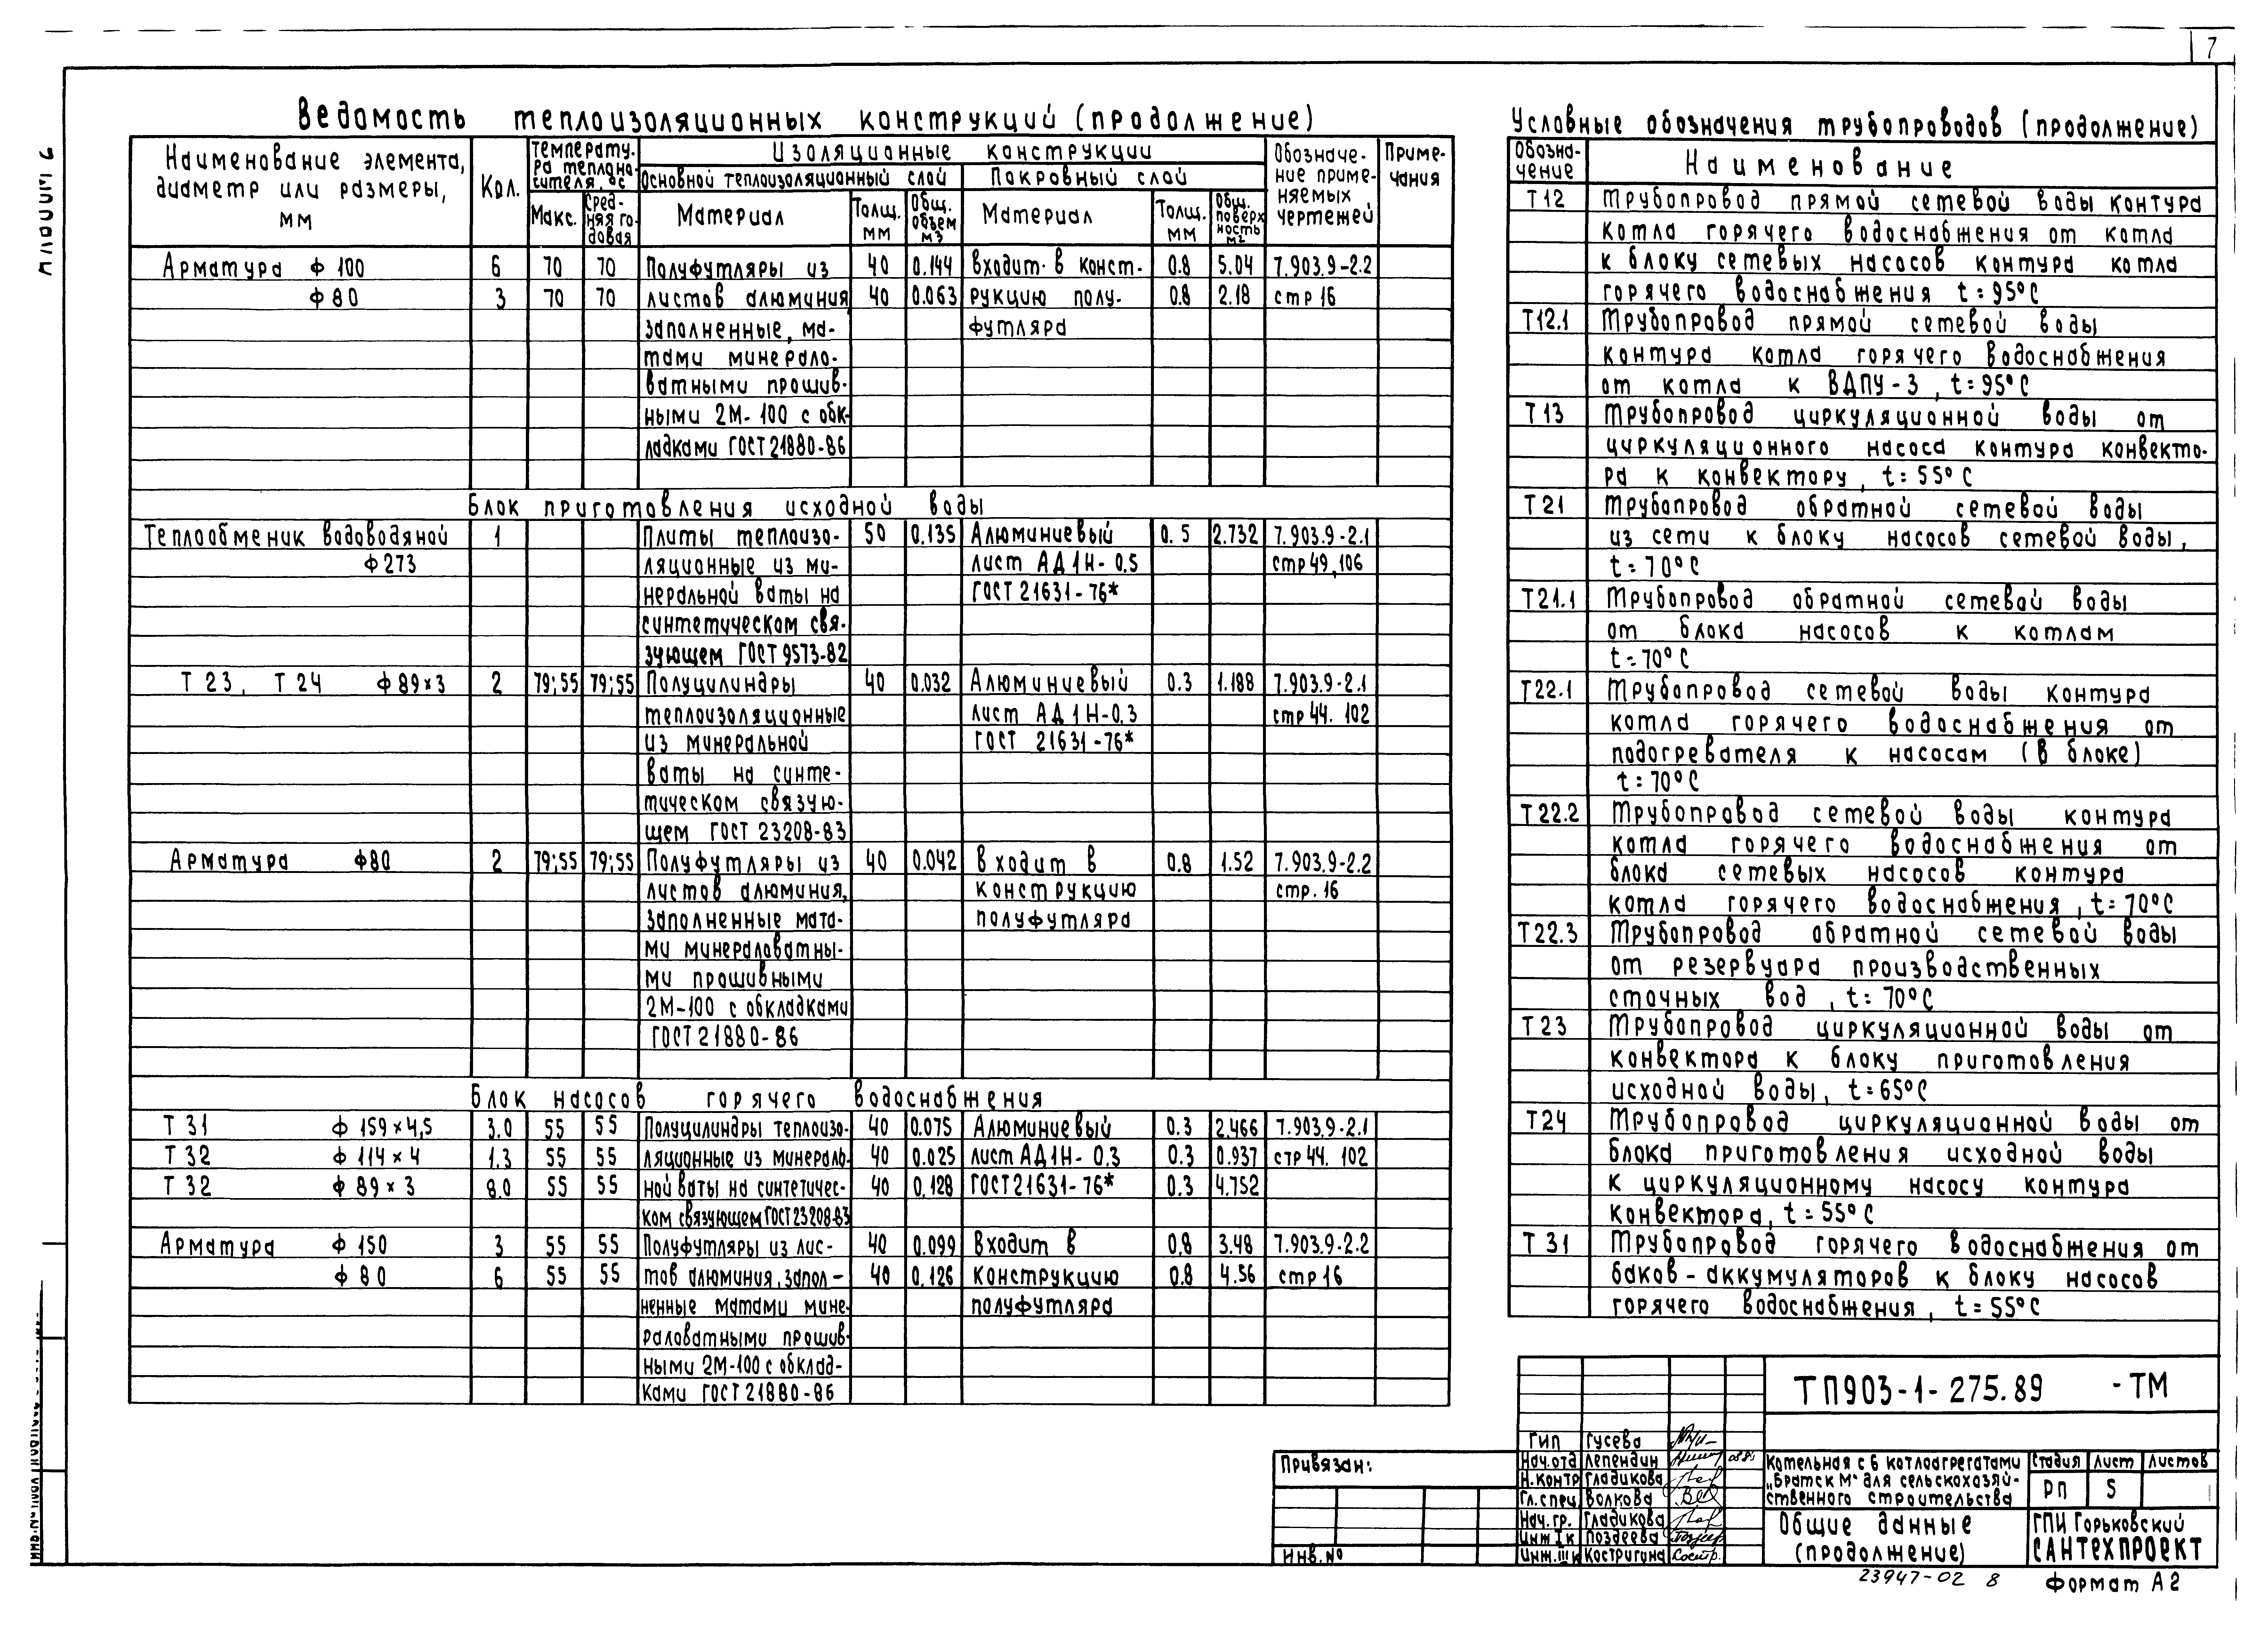 7
Ведомость теплоизоляционных конструкций (продолжение)
Наименование элемента, диаметр или размеры, мм
Кол.
Температура теплоносителя, ос
Макс.
Средняя годовая
Изоляционные конструкции
Основной теплоизоляционный слой
Покровный слой
Материал
Толщ. мм
Общ. объем м3
Материал
Толщ. мм
Общ. поверхность м2
Обозначение применяемых чертежей
Примечания
Арматура ф 100 6 70 70 Полуфутляры из 40 0.144 Входит в конст- 0.8 5.04 7.903.9-2.2
ф 80 3 70 70 листов алюминия 40 0.063 рукцию полу- 0.8 2.18 стр 16
заполненные, ма- футляра
тами минерало-
ватными прошив-
ными 2М-100 с обк-
ладками ГОСТ 21880-86
Блок приготовления исходной воды
Теплообменик водоводяной 1 Плиты теплоизо- 50 0.135 Алюминиевый 0.5 2.732 7.903.9-2.1
ф 273 ляционные из ми- лист АД1Н-0,5 стр 49,106
неральной ваты на ГОСТ 21631-76*
синтетическом свя-
зующем ГОСТ 9573-82
Т 23, Т 24 ф 89×3 2 79;55 79;55 Полуцилиндры 40 0.032 Алюминиевый 0.3 1.188 7.903.9-2.1
теплоизоляционные лист АД1Н-0,3 стр 44. 102
из минеральной ГОСТ 21631-76*
ваты на синте-
тическом связую-
щем ГОСТ 23208-83
Арматура ф80 2 79;55 79;55 Полуфутляры из 40 0.042 Входит в 0.8 1.52 7.903.9-2.2
листов алюминия, конструкцию стр. 16
заполненные мата- полуфутляра
ми минераловатны-
ми прошивными
2М-100 с обкладками
ГОСТ 21880-86
Блок насосов горячего водоснабжения
Т 31 ф 159×4,5 3.0 55 55 Полуцилиндры теплоизо- 40 0.075 Алюминиевый 0.3 2.466 7.903.9-2.1
Т 32 ф 114×4 1.3 55 55 ляционные из минерало- 40 0.025 лист АД1Н-0,3 0.3 0.937 стр 44. 102
Т 32 ф 89×3 8.0 55 55 ной ваты на синтетичес- 40 0.128 ГОСТ 21631-76* 0.3 4.752
ком связующем ГОСТ 23208-83
Арматура ф 150 3 55 55 Полуфутляры из лис- 40 0.099 Входит в 0.8 3.48 7.903.9-2.2
ф 80 6 55 55 тов алюминия, запол- 40 0.126 конструкцию 0.8 4.56 стр 16
ненные матами мине- полуфутляра
раловатными прошив-
ными 2М-100 с обклад-
ками ГОСТ 21880-86
Условные обозначения трубопроводов (продолжение)
Обозначение Наименование
Т12 Трубопровод прямой сетевой воды контура
котла горячего водоснабжения от котла
к блоку сетевых насосов контура котла
горячего водоснабжения t=95°С
Т12.1 Трубопровод прямой сетевой воды
контура котла горячего водоснабжения
от котла к ВДПУ-3, t=95°С
Т13 Трубопровод циркуляционной воды от
циркуляционного насоса контура конвекто-
ра к конвектору, t=55°С
Т21 Трубопровод обратной сетевой воды
из сети к блоку насосов сетевой воды,
t=70°С
Т21.1 Трубопровод обратной сетевой воды
от блока насосов к котлам
t=70°С
Т22.1 Трубопровод сетевой воды контура
котла горячего водоснабжения от
подогревателя к насосам (в блоке)
t=70°С
Т22.2 Трубопровод сетевой воды контура
котла горячего водоснабжения от
блока сетевых насосов контура
котла горячего водоснабжения, t=70°С
Т22.3 Трубопровод обратной сетевой воды
от резервуара производственных
сточных вод, t=70°С
Т23 Трубопровод циркуляционной воды от
конвектора к блоку приготовления
исходной воды, t=65°С
Т24 Трубопровод циркуляционной воды от
блока приготовления исходной воды
к циркуляционному насосу контура
конвектора, t=55°С
Т 31 Трубопровод горячего водоснабжения от
баков-аккумуляторов к блоку насосов
горячего водоснабжения, t=55°С
ТП903-1-275.89 -ТМ
Гип Гусева
Нач.отд Лепендин
Н.контр Гладикова
Гл.спец. Волкова
Нач.гр. Гладикова
Инж I к Поздеева
Инж.III к Костригина
Привязан:
Инв.№
Котельная с 6 котлоагрегатами
„Братск М" для сельскохозяй-
ственного строительства
Стадия Лист Листов
РП 5
Общие данные
(продолжение)
ГПИ Горьковский
САНТЕХПРОЕКТ
23947-02 8
Формат А2